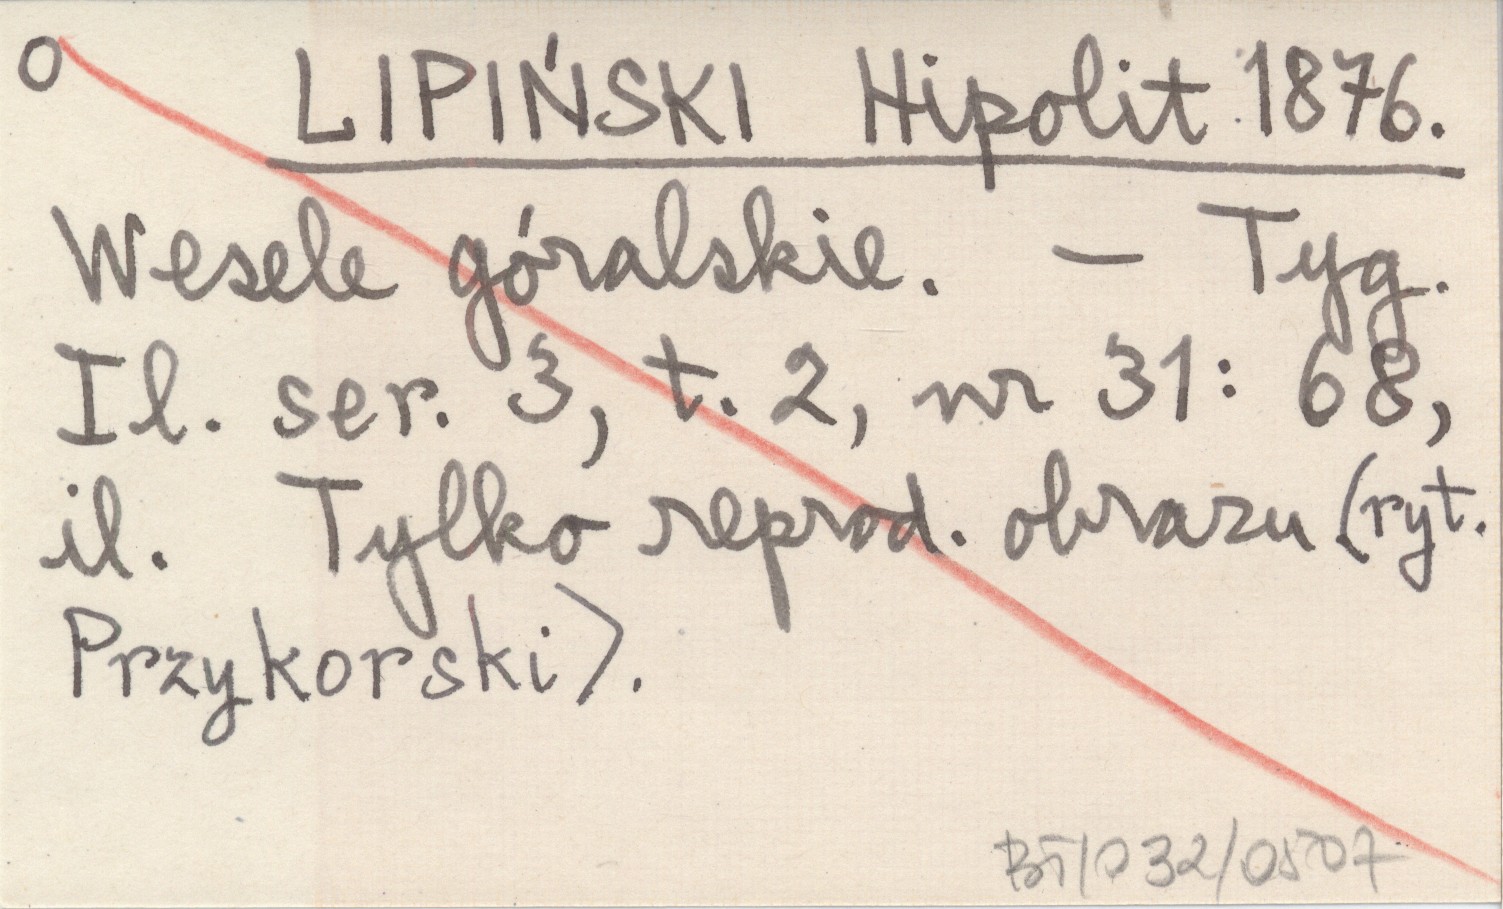 o LIPIŃSKI Hipolit 1876.
Wesele góralskie. – Tyg.
Il. ser. 3, t. 2, nr 31: 68,
il. Tylko reprod. obrazu (ryt.
Przykorski).
BŁ/032/0507